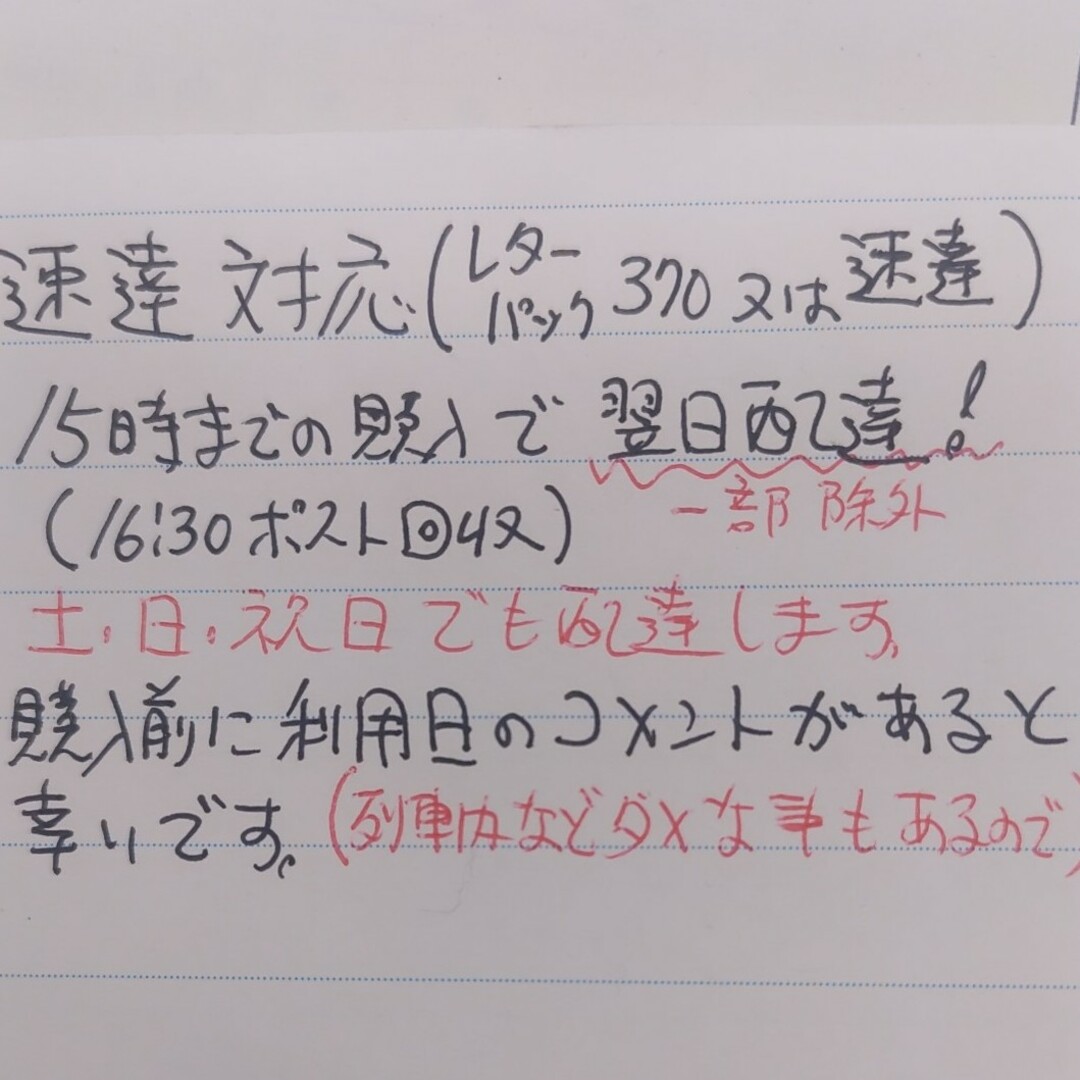 速達対応(レターパック370又は速達)
15時までの購入で翌日配達!
一部除外
(16:30ポスト回収)
土・日・祝日でも配達します。
購入前に利用日のコメントがあると
幸いです。(列車内などダメな事もあるので)